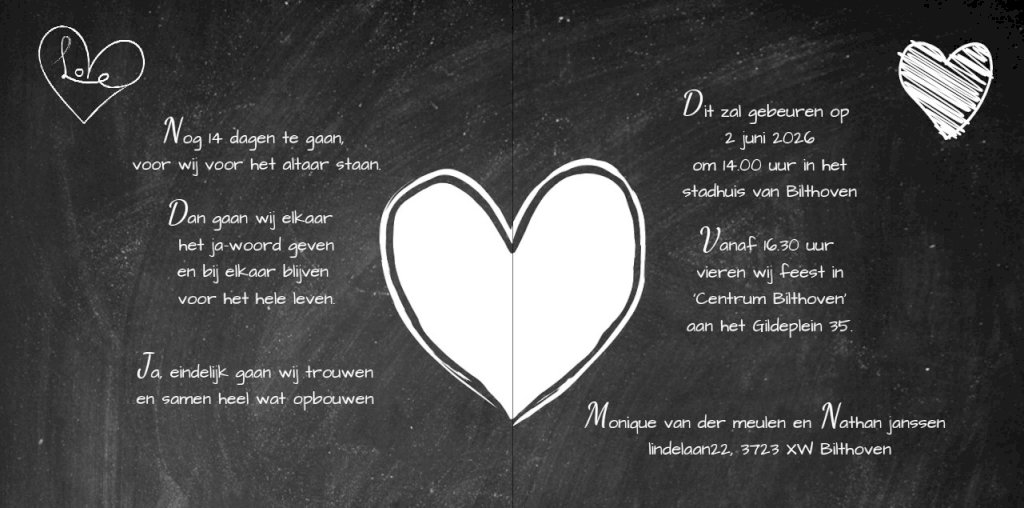 Love
Nog 14 dagen te gaan,
voor wij voor het altaar staan.
Dan gaan wij elkaar
het ja-woord geven
en bij elkaar blijven
voor het hele leven.
Ja, eindelijk gaan wij trouwen
en samen heel wat opbouwen
Dit zal gebeuren op
2 juni 2026
om 14.00 uur in het
stadhuis van Bilthoven
Vanaf 16.30 uur
vieren wij feest in
'Centrum Bilthoven'
aan het Gildeplein 35.
Monique van der meulen en Nathan janssen
lindelaan22, 3723 XW Bilthoven